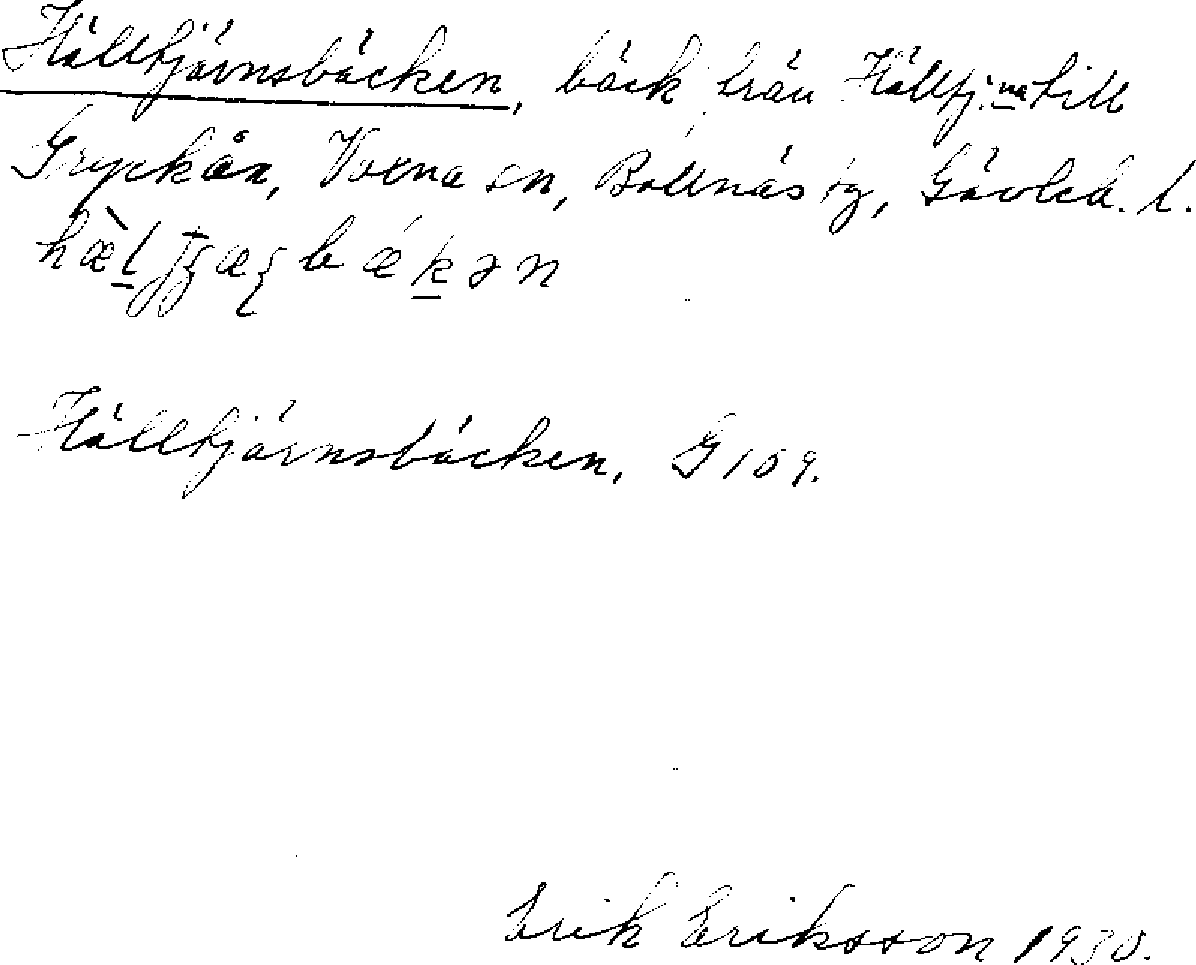 Hälltjärnsbäcken, bäck från Hälltj:na till
Gryckån, Voxna sn, Bollnäs tg, Gävleb. l.
Hälltjärnsbäcken, G 109.
Erik Eriksson 1930.